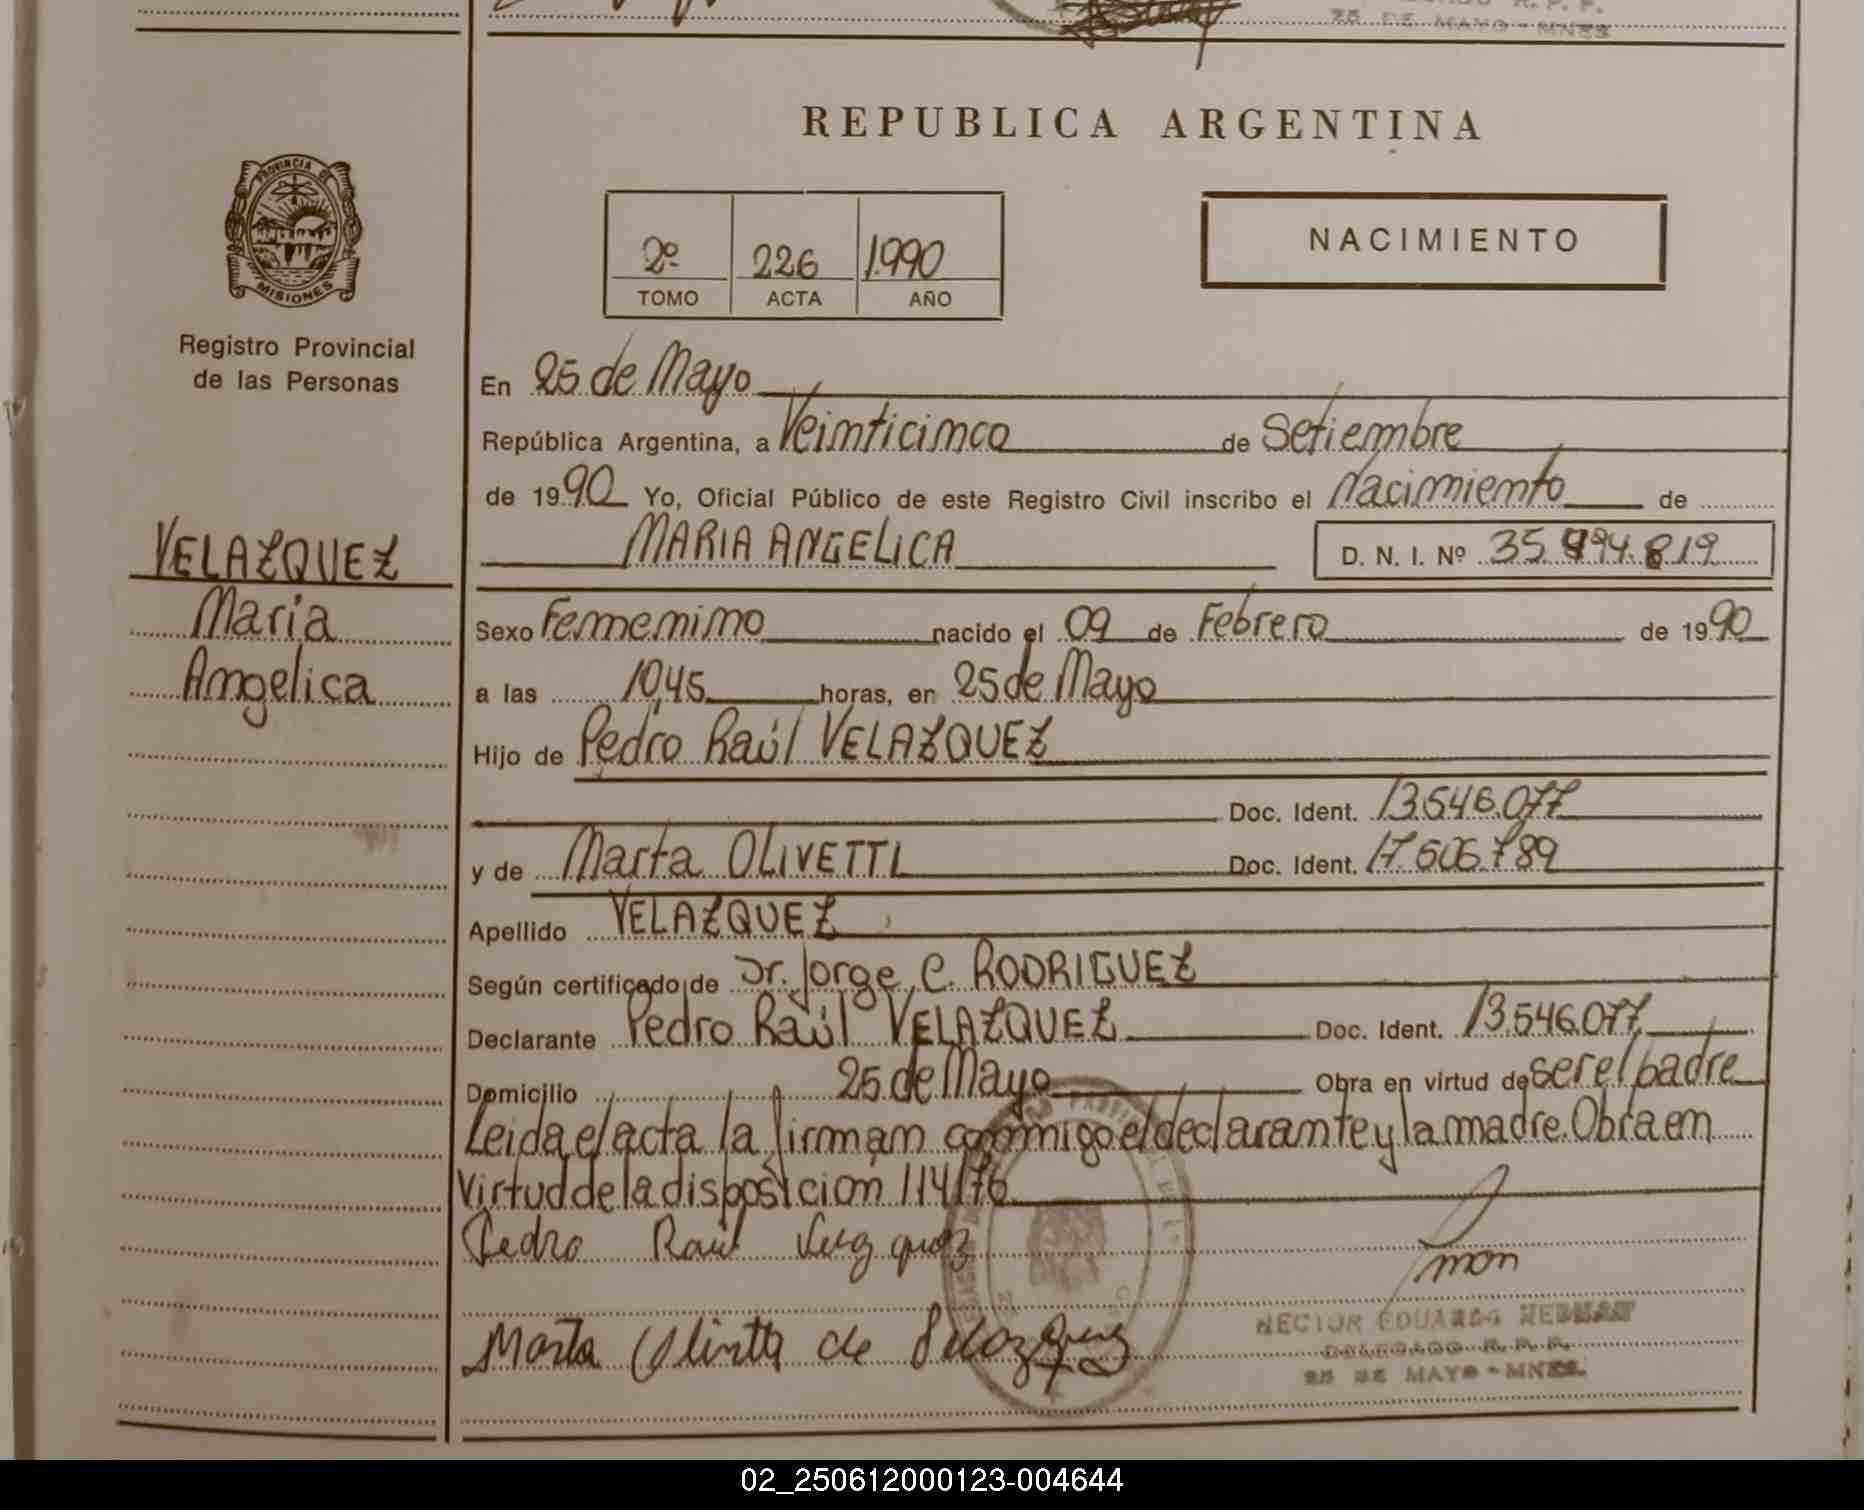 25 DE MAYO - MNES
REPUBLICA ARGENTINA
PROVINCIA DE
MISIONES
2º 226 1990
TOMO ACTA AÑO
NACIMIENTO
Registro Provincial
de las Personas
En 25 de Mayo
República Argentina, a Veinticinco de Setiembre
de 1990 Yo, Oficial Público de este Registro Civil inscribo el Nacimiento de
VELAZQUEZ
Maria
Angelica
MARIA ANGELICA D. N. I. Nº 35.494.819
Sexo Femenino nacido el 09 de Febrero de 1990
a las 10,45 horas, en 25 de Mayo
Hijo de Pedro Raúl VELAZQUEZ
Doc. Ident. 13.546.077
y de Marta OLIVETTI Doc. Ident. 17.606.789
Apellido VELAZQUEZ
Según certificado de Dr. Jorge C. RODRIGUEZ
Declarante Pedro Raúl VELAZQUEZ Doc. Ident. 13.546.077
Domicilio 25 de Mayo Obra en virtud de ser el padre
Leida el acta la firman conmigo el declarante y la madre. Obra en
virtud de la disposición 114/76
Pedro Raul
Marta de
HECTOR EDUARDO
DELEGADO R.P.P.
25 DE MAYO - MNES.
02_250612000123-004644